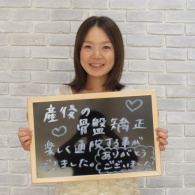 産後の
骨盤矯正
楽しく通院出来
ました。
ありがとう
ございました